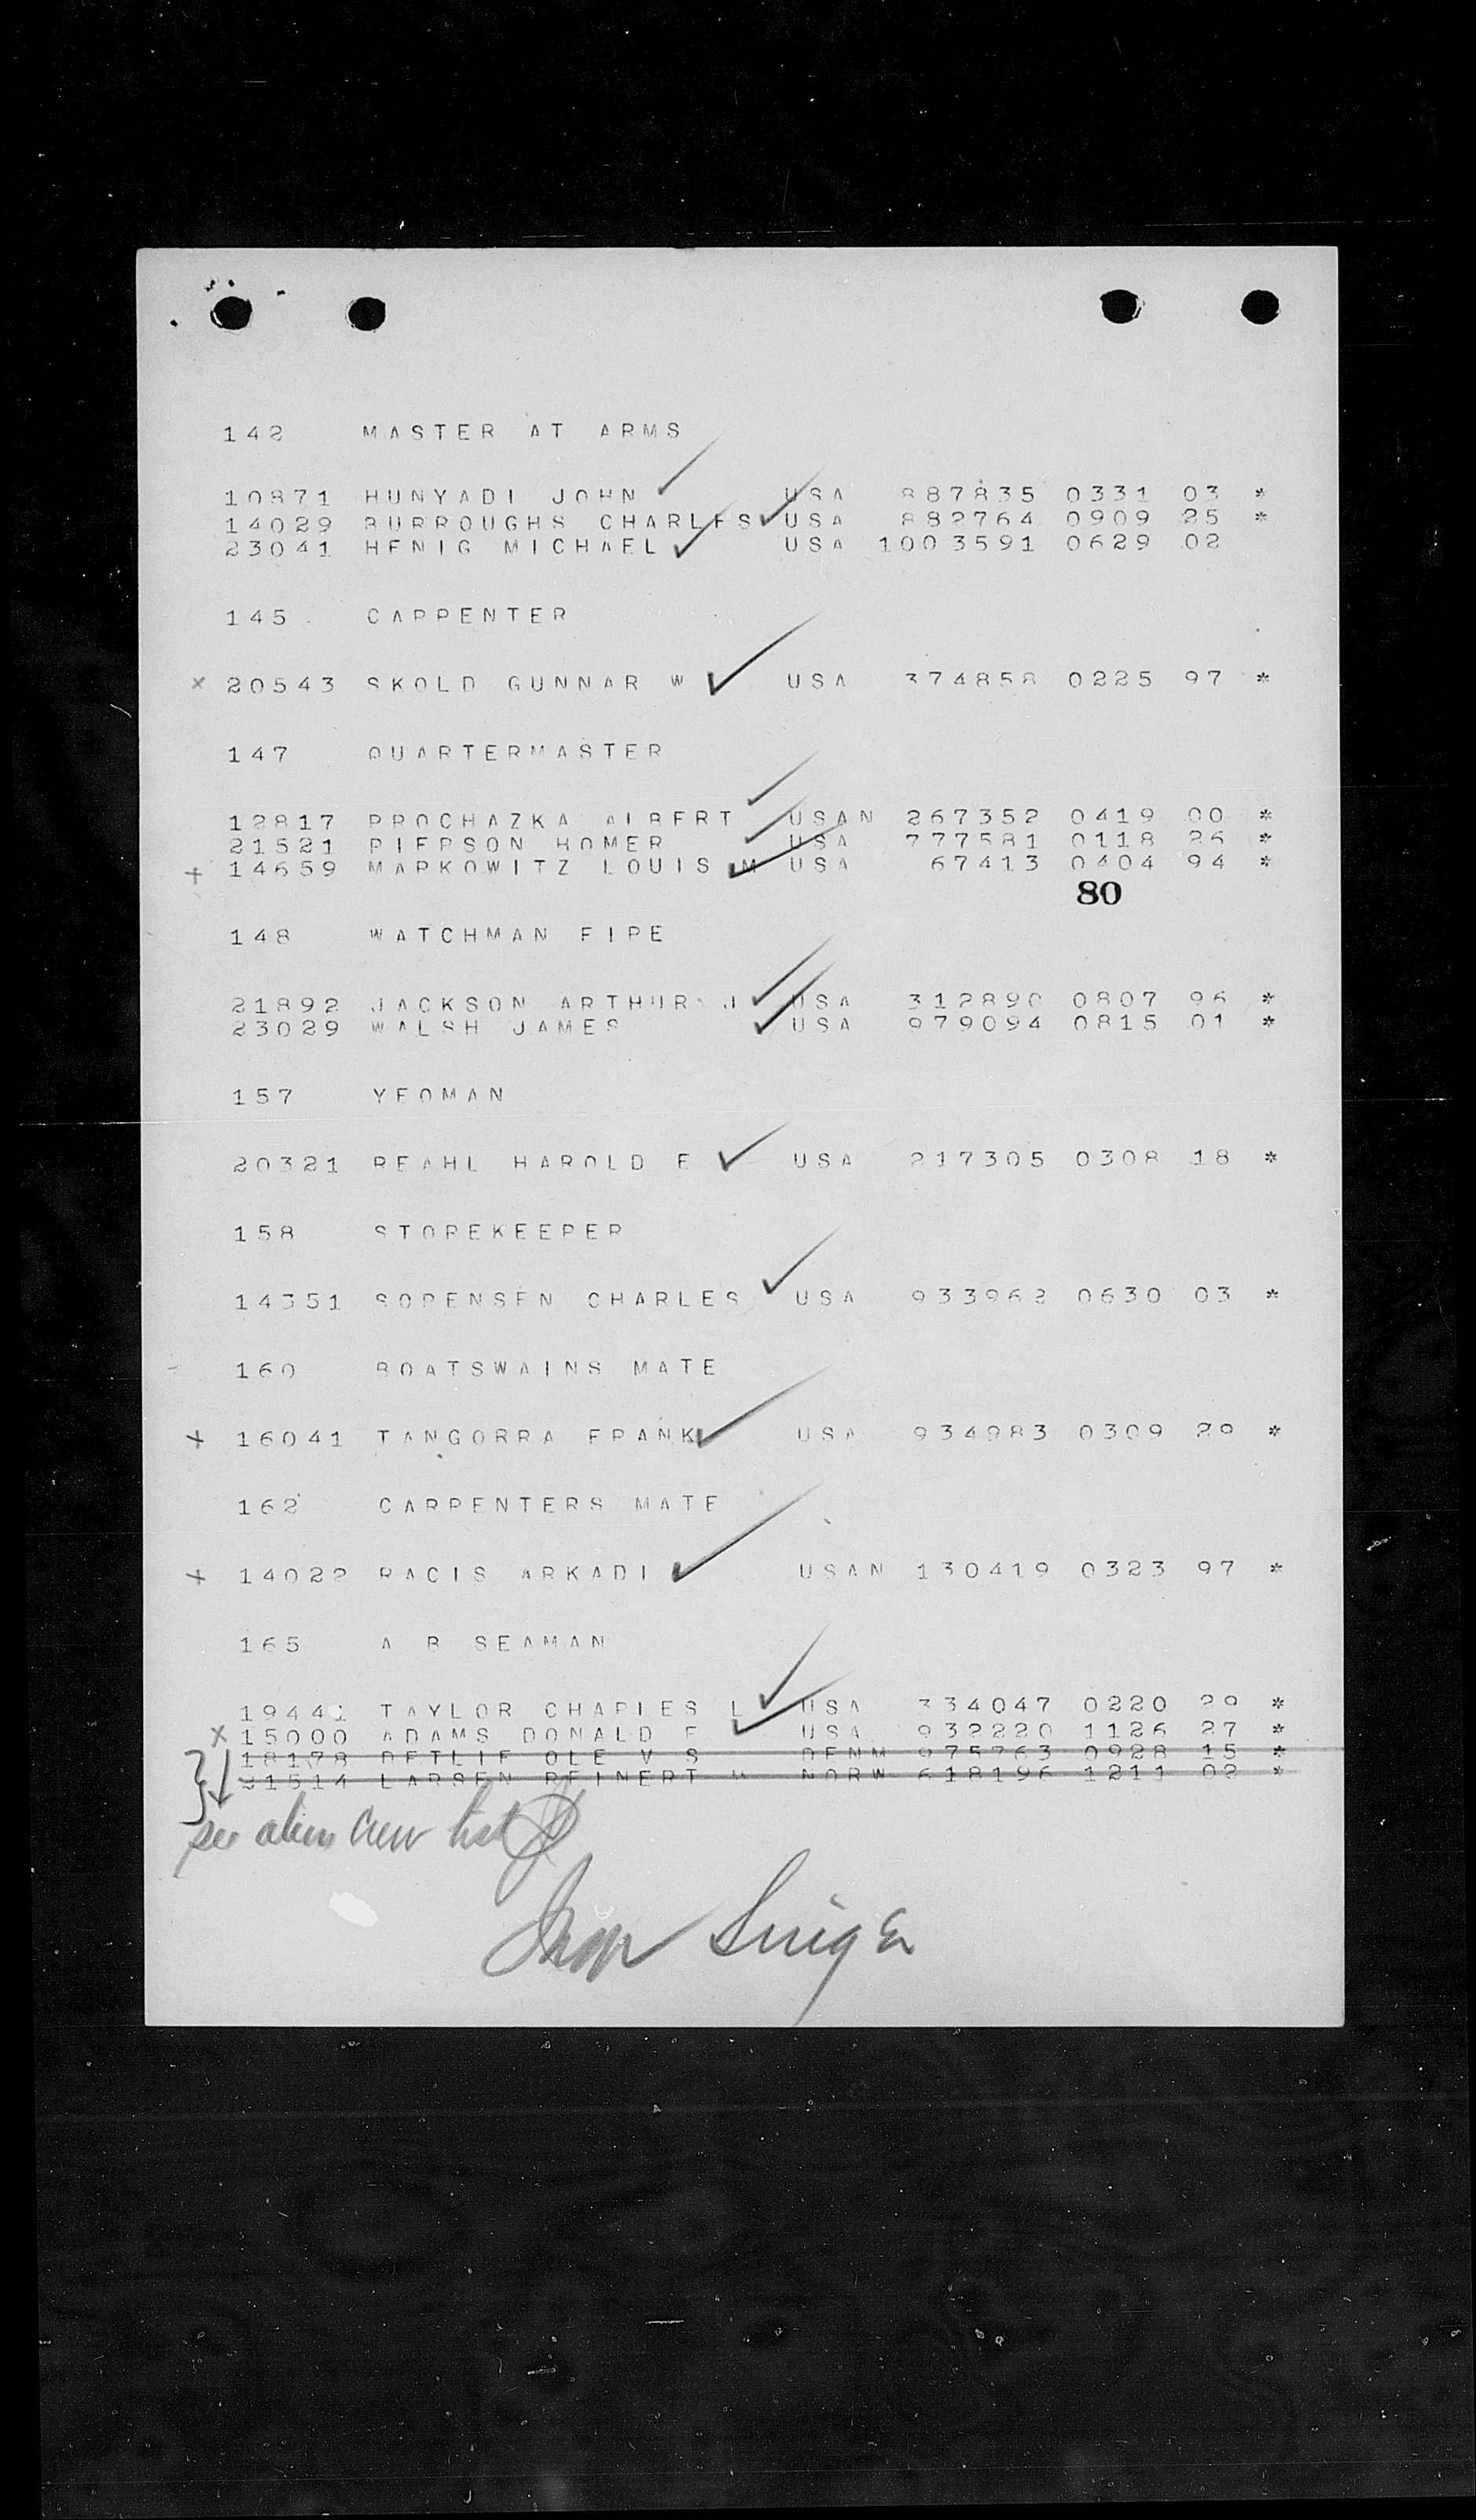 142 MASTER AT ARMS
10871 HUNYADI JOHN USA 887835 0331 03 *
14029 BURROUGHS CHARLES USA 882764 0909 25 *
23041 HENIG MICHAEL USA 1003591 0629 02
145 CARPENTER
x 20543 SKOLD GUNNAR W USA 374858 0225 97 *
147 QUARTERMASTER
12817 PROCHAZKA ALBERT USAN 267352 0419 00 *
21521 PIERSON HOMER USA 777581 0118 26 *
+ 14659 MARKOWITZ LOUIS M USA 67413 0404 94 *
80
148 WATCHMAN FIRE
21892 JACKSON ARTHUR J USA 312890 0807 96 *
23029 WALSH JAMES USA 979094 0815 01 *
157 YEOMAN
20321 REAHL HAROLD E USA 217305 0308 18 *
158 STOREKEEPER
14351 SORENSEN CHARLES USA 933962 0630 03 *
160 BOATSWAINS MATE
+ 16041 TANGORRA FRANK USA 934983 0309 29 *
162 CARPENTERS MATE
+ 14022 RACIS ARKADI USAN 130419 0323 97 *
165 A B SEAMAN
19441 TAYLOR CHARLES L USA 334047 0220 29 *
x 15000 ADAMS DONALD F USA 932220 1126 27 *
18178 DETLIF OLE V S DENM 975763 0928 15 *
21514 LARSEN REINERT M NORW 618196 1211 02 *
see alien crew list